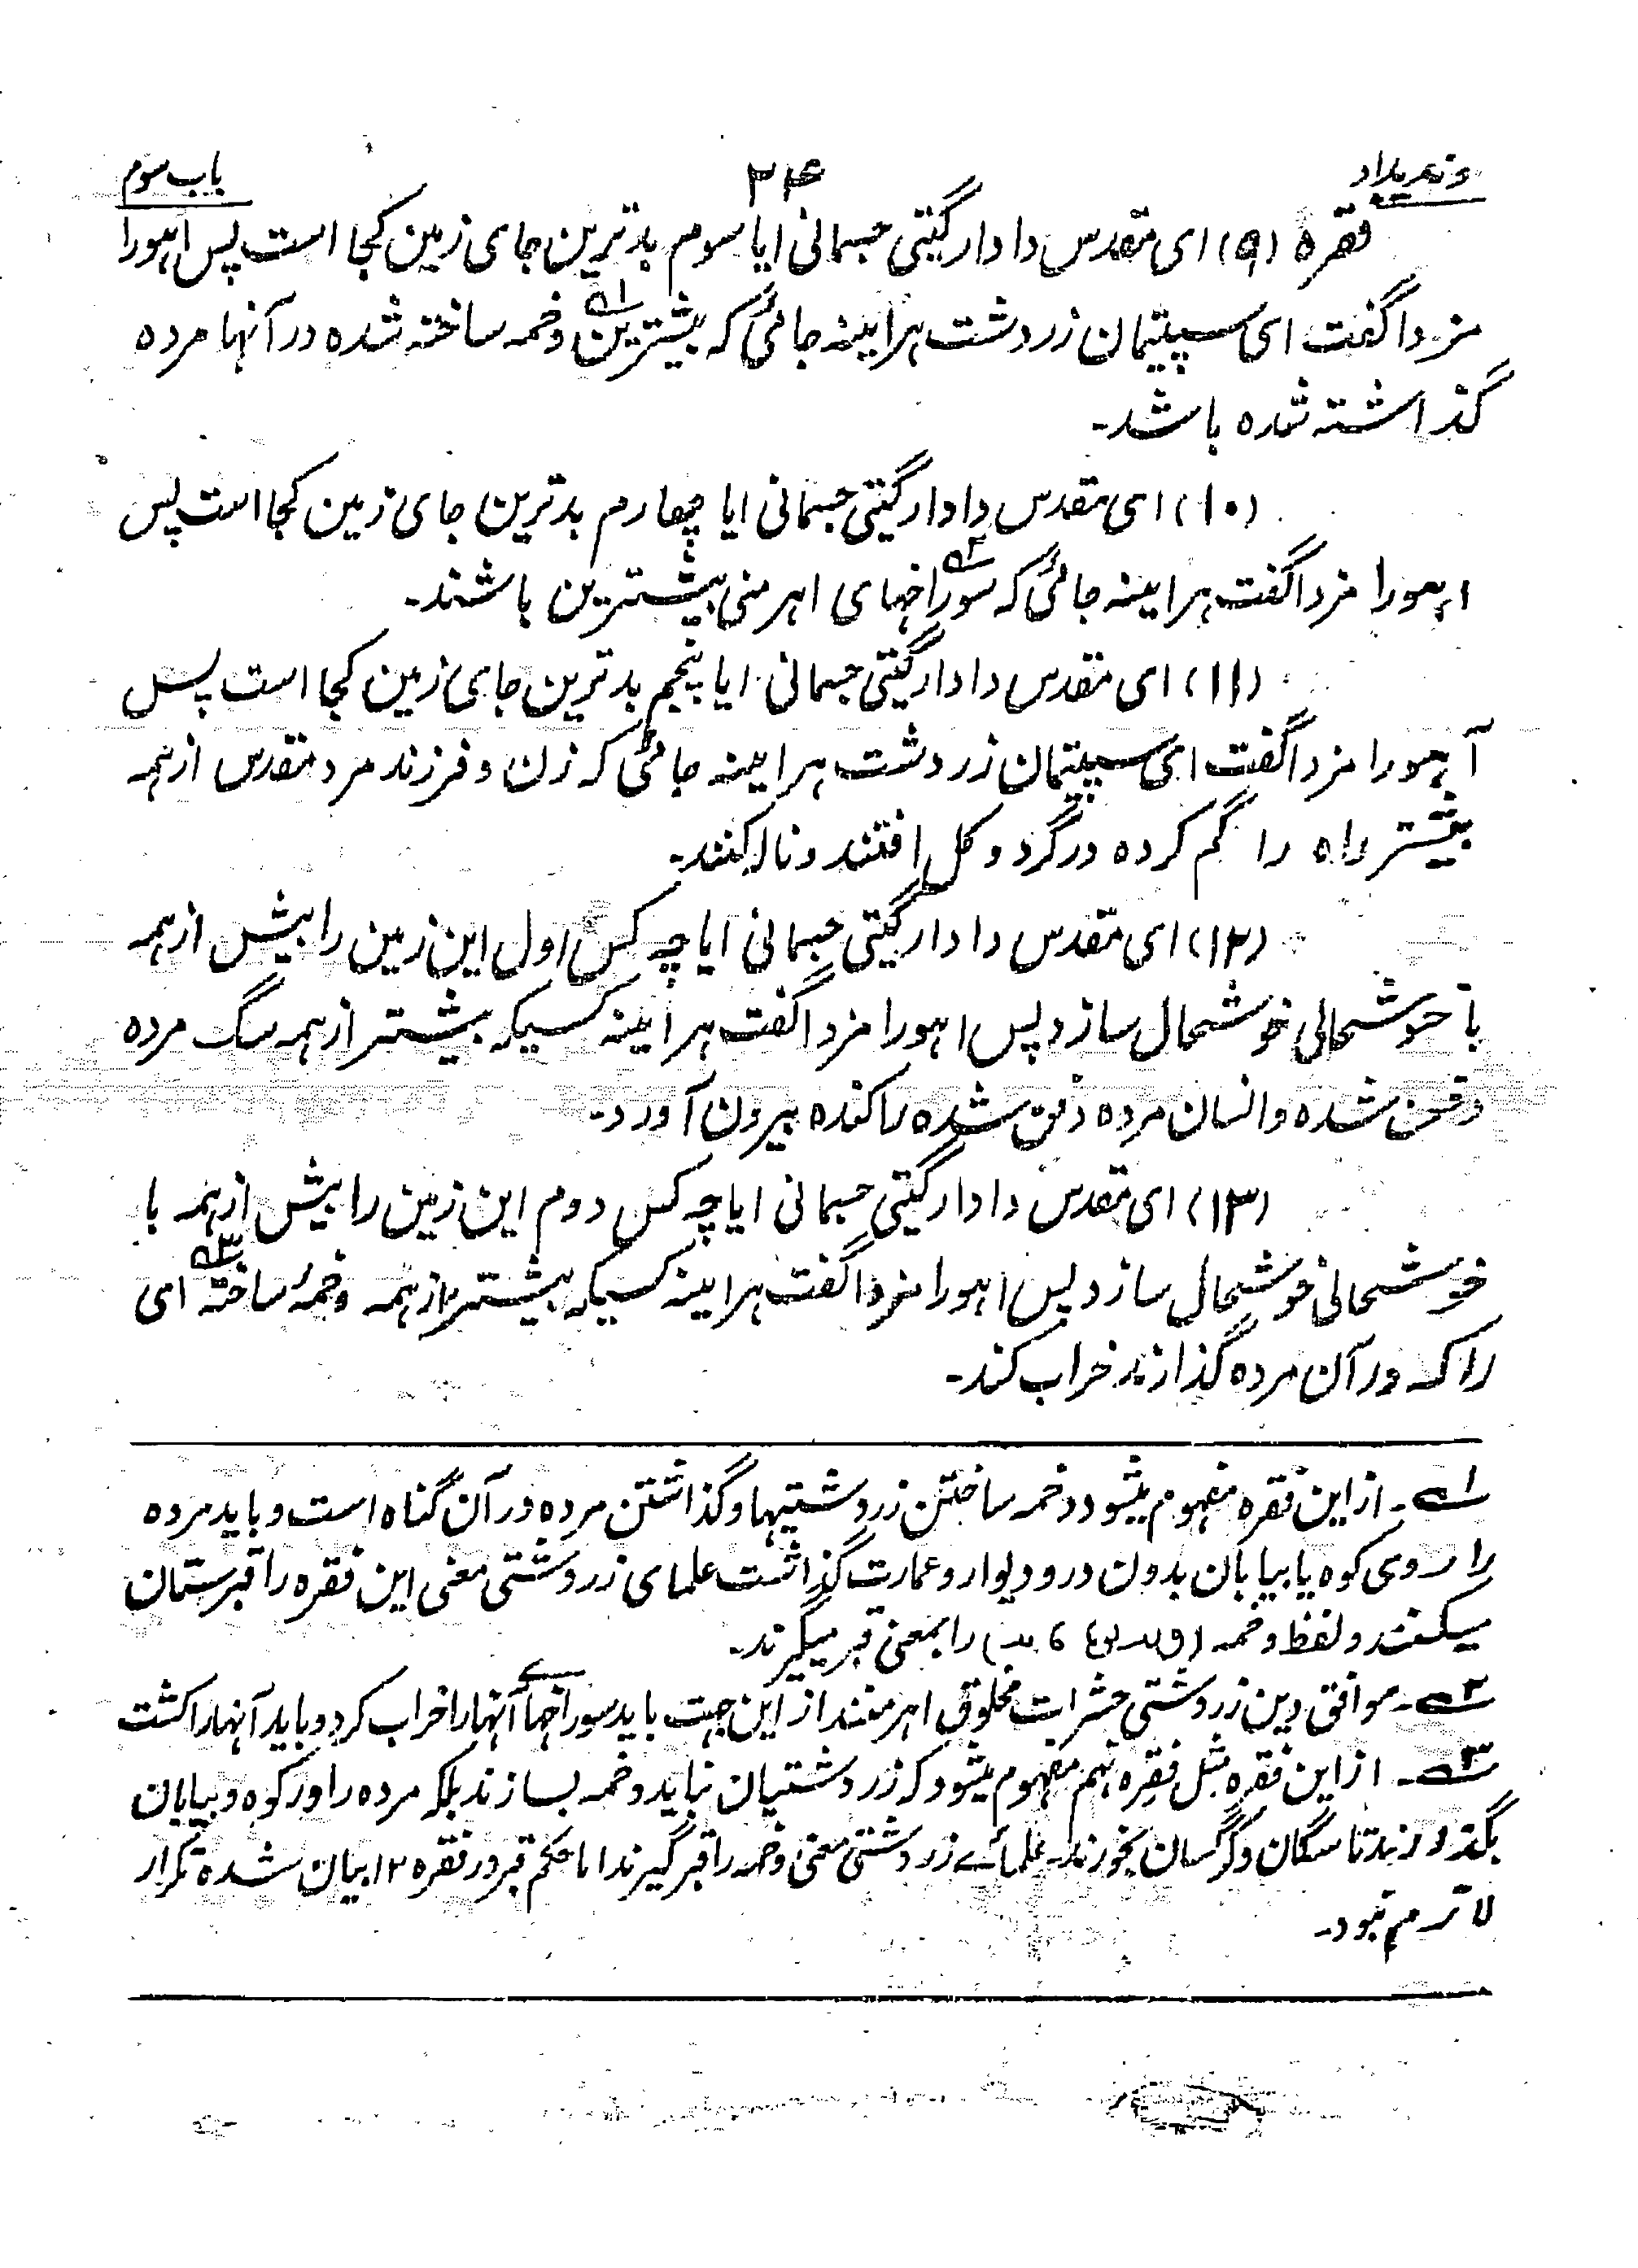 وندیداد ۲۴ باب سوم
فقره (۹) ای مقدس دادار گیتی جسمانی ایا سوم بدترین جای زمین کجا است پس اهورا
مزدا گفت ای سپیتمان زردشت هراینه جائی که بیشترین ۱ دخمه ساخته شده در آنها مرده
گذاشته شده باشد-
(۱۰) ای مقدس دادار گیتی جسمانی ایا چهارم بدترین جای زمین کجا است پس
اهورا مزدا گفت هراینه جائی که سوراخهای ۲ اهرمنی بیشترین باشند-
(۱۱) ای مقدس دادار گیتی جسمانی ایا پنجم بدترین جای زمین کجا است پس
آهورا مزدا گفت ای سپیتمان زردشت هراینه جائی که زن و فرزند مرد مقدس از همه
بیشتر راه را گم کرده در گرد و گل افتند و ناله کنند-
(۱۲) ای مقدس دادار گیتی جسمانی ایا چه کس اول این زمین را بیش از همه
با خوشحالی خوشحال سازد پس اهورا مزدا گفت هراینه کسیکه بیشتر از همه سگ مرده
دفن شده و انسان مرده دفن شده را کنده بیرون آورد-
(۱۳) ای مقدس دادار گیتی جسمانی ایا چه کس دوم این زمین را بیش از همه با
خوشحالی خوشحال سازد پس اهورا مزدا گفت هراینه کسیکه بیشتر از همه دخمهٔ ساخته ۳ ای
را که در آن مرده گذارند خراب کند-
۱- از این فقره مفهوم میشود دخمه ساختن زردشتیها و گذاشتن مرده در آن گناه است و باید مرده
را روی کوه یا بیابان بدون در و دیوار و عمارت گذاشت علمای زردشتی معنی این فقره را قبرستان
میکنند و لفظ دخمه را بمعنی قبر میگیرند-
۲- موافق دین زردشتی حشرات مخلوق اهرمنند از این جهت باید سوراخهای آنها را خراب کرد و باید آنها را کشت
۳- از این فقره مثل فقره نهم مفهوم میشود که زردشتیان نباید دخمه بسازند بلکه مرده را در کوه و بیابان
بگذارند تا سگان و کرگسان بخورند- علمائے زردشتی معنی دخمه را قبر گیرند اما حکم قبر در فقره ۱۲ بیان شده تکرار
لازم نبود-